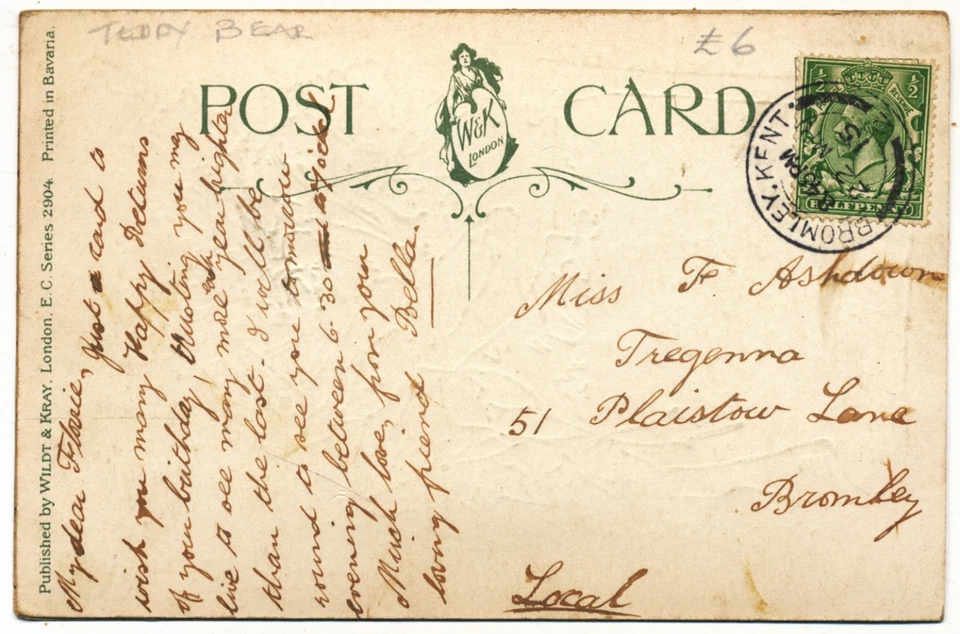 TEDDY BEAR
£6
POST CARD
W&K
LONDON
Published by WILDT & KRAY, London, E.C. Series 2904. Printed in Bavaria.
½ ½
HALFPENNY
BROMLEY, KENT.
15
My dear Florrie, Just a card to
wish you many Happy Returns
of your birthday, trusting you may
live to see many more each year brighter
than the last. I will be
round to see you tomorrow
evening between 6.30
Much love, from your
loving friend Bella.
Miss F Ashdown
Tregenna
51 Plaistow Lane
Bromley
Local